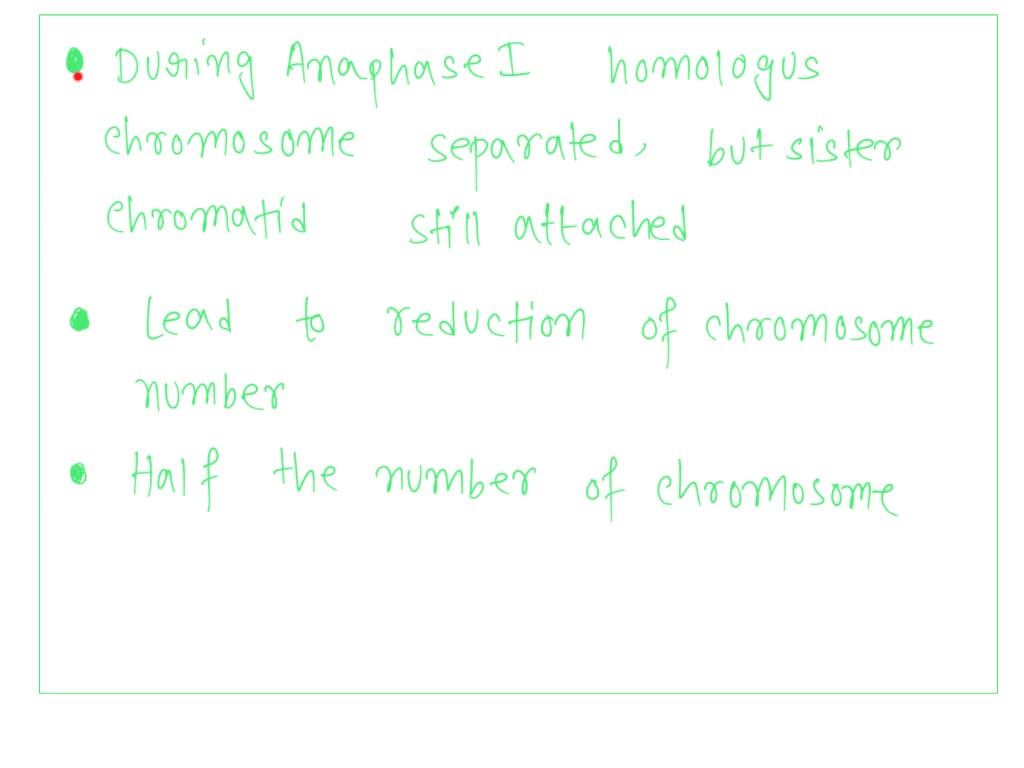 During Anaphase I homologus
chromosome separated, but sister
chromatid still attached
Lead to reduction of chromosome
number
Half the number of chromosome